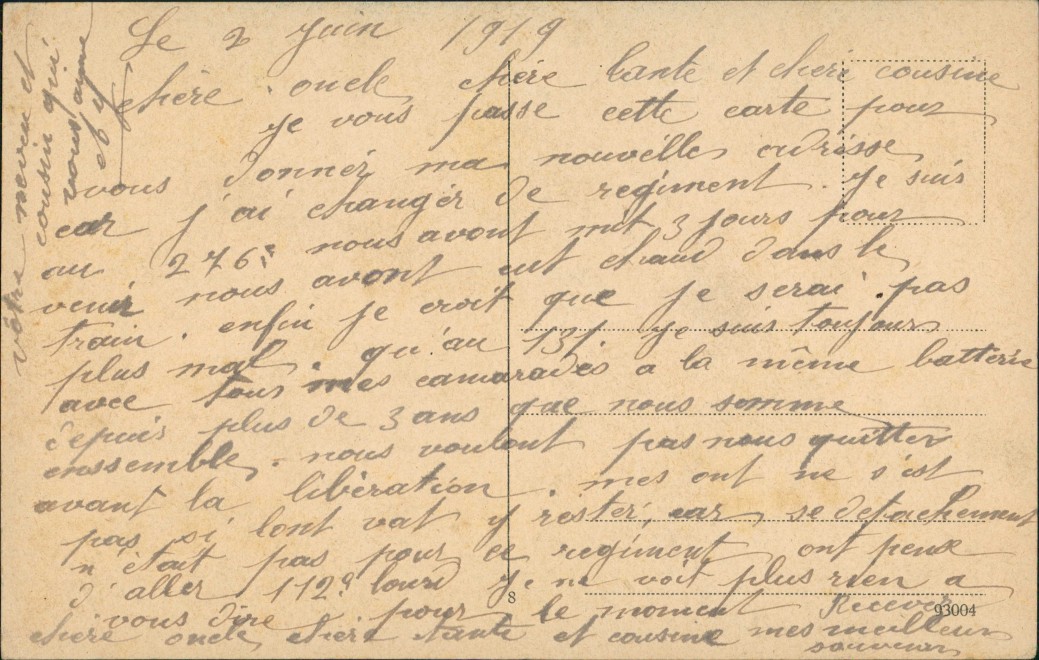 Le 2 Juin 1919
chère oncle chère tante et chèri cousine
je vous passe cette carte pour
vous donner ma nouvélle adrésse
car j'ai changér de regiment. Je suis
au 276e nous avont mit 3 jours pour
venir nous avont eut chaud dans le
train. enfin je croit que je serai pas
plus mal. qu'au 131. je suis toujours
avec tous mes camarades a la même batterie
depuis plus de 3 ans que nous somme
enssemble. nous voulont pas nous quitter
avant la libération. mes ont ne s'est
pas si lont vat y restér, car se detachement
n'était pas pour ce regiment ont peux
d'aller 112e lourd Je ne voit plus rien a
vous dire pour le moment Recever
chère oncle chère tante et cousine mes meilleur
souvenir
vôtre neveu et
cousin qui
vous aime
8
93004